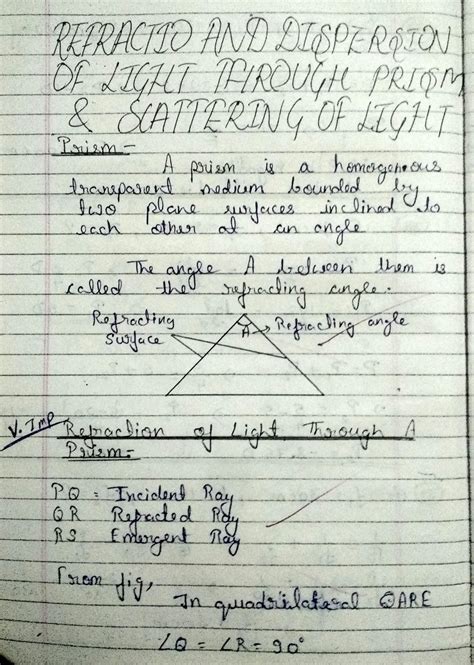 REFRACTIO AND DISPERSION
OF LIGHT THROUGH PRISM
& SCATTERING OF LIGHT
Prism =
A prism is a homogeneous
transparent medium bounded by
two plane surfaces inclined to
each other at an angle
The angle A between them is
called the refracting angle.
Refracting Surface
A
Refracting angle
V. Imp
Refraction of Light Through A
Prism =
PQ = Incident Ray
QR Refracted Ray
RS Emergent Ray
From fig,
In quadrilateral QARE
∠Q = ∠R = 90°